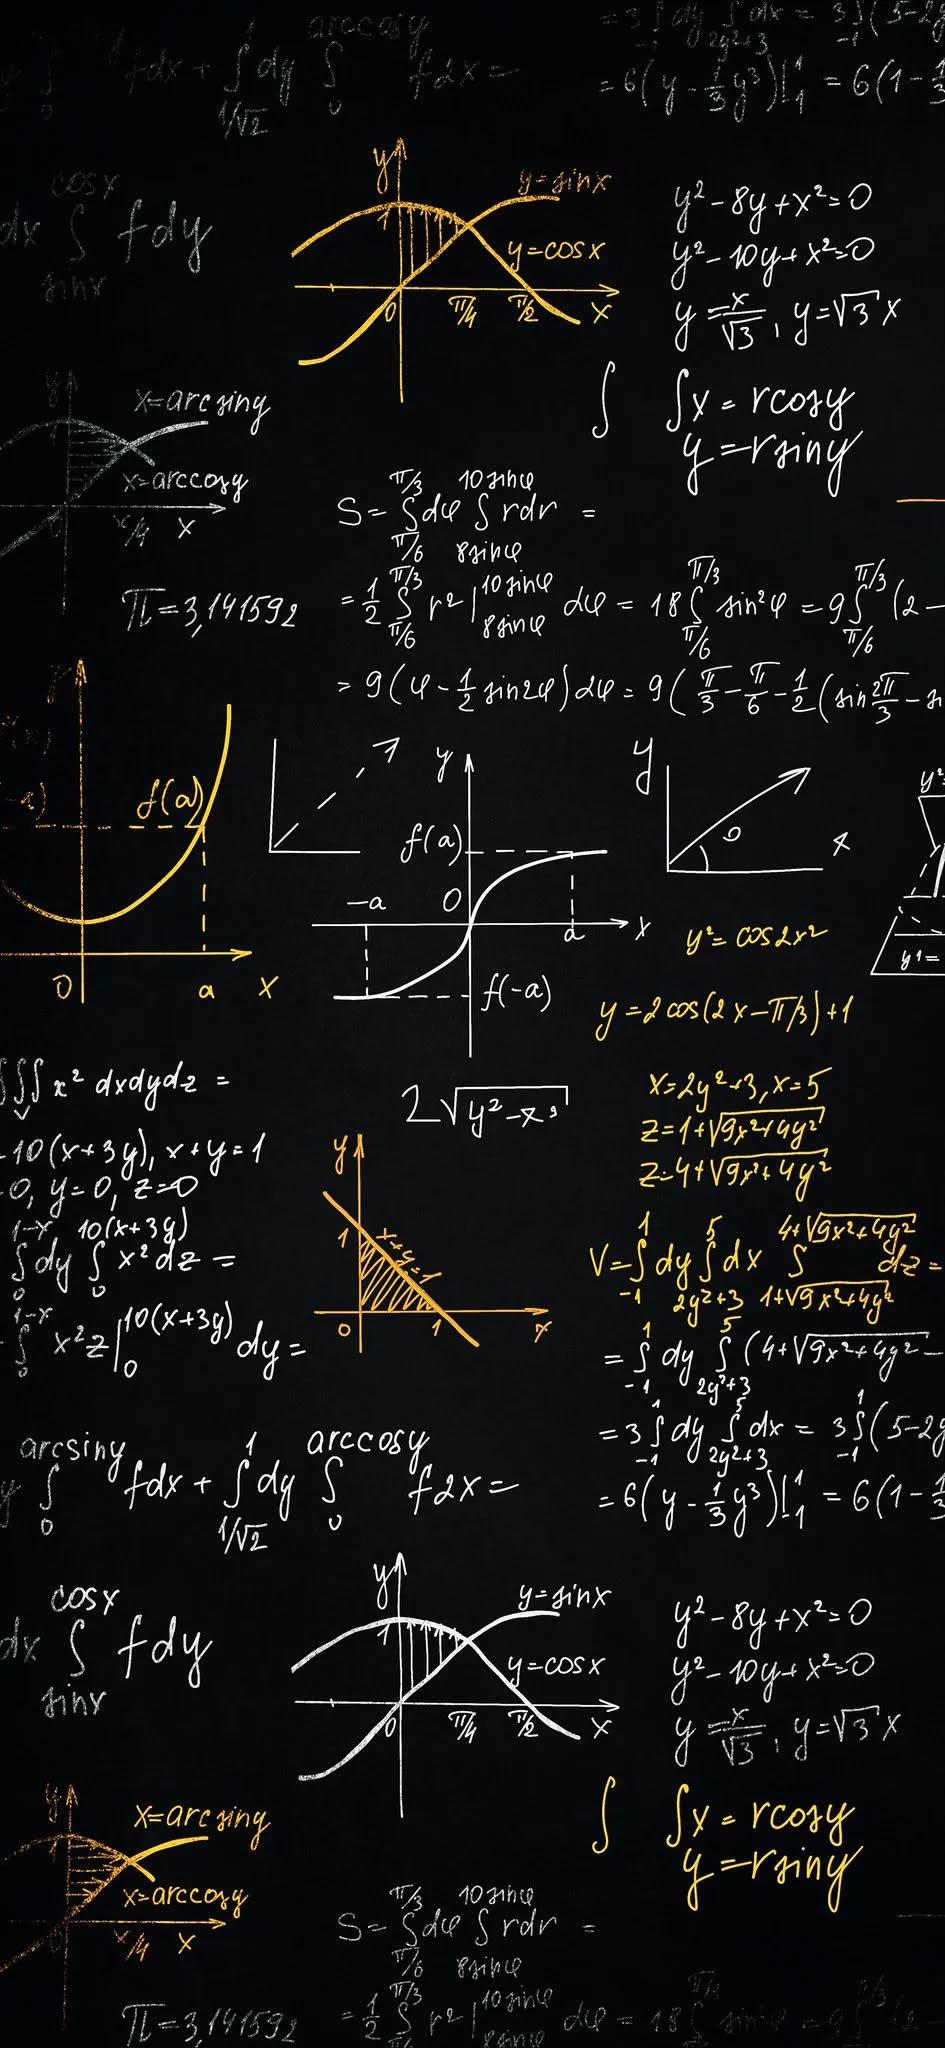 arccosy
∫₀ fdx + ∫_{1/√2}^{1} dy ∫₀ f2x =
= 3∫₋₁ dy ∫_{2y²+3} dx = 3∫₋₁ (5-2y
= 6(y - 1/3 y³)|₋₁¹ = 6(1 - 1/3
dx ∫_{sinx}^{cosx} fdy
y
1
y=sinx
y=cosx
0 π/4 π/2 x
y² - 8y + x² = 0
y² - 10y + x² = 0
y = x/√3, y = √3 x
∫ ∫x = rcosy
y = rsiny
y
x=arcsiny
x=arccosy
0 π/4 x
S = ∫_{π/6}^{π/3} dφ ∫_{8sinφ}^{10sinφ} rdr =
π = 3,141592
= 1/2 ∫_{π/6}^{π/3} r² |_{8sinφ}^{10sinφ} dφ = 18 ∫_{π/6}^{π/3} sin²φ = 9 ∫_{π/6}^{π/3} (2 -
= 9(φ - 1/2 sin2φ) 2φ = 9(π/3 - π/6 - 1/2 (sin 2π/3 - si
f(a)
0 a x
y
f(a)
-a 0
a x
f(-a)
y
x
y²=
y1=
y² = cos2x²
y = 2cos(2x - π/3) + 1
∭_V x² dxdydz =
2√(y² - x²)
x = 2y² + 3, x = 5
z = 1 + √(9x² + 4y²)
z = 4 + √(9x² + 4y²)
10(x+3y), x+y=1
0, y=0, z=0
∫₀^{1-x} dy ∫₀^{10(x+3y)} x² dz =
∫₀^{1-x} x²z |₀^{10(x+3y)} dy =
y
1
x+y=1
0 1 x
V = ∫₋₁¹ dy ∫_{2y²+3}^{5} dx ∫_{1+√(9x²+4y²)}^{4+√(9x²+4y²)} dz =
= ∫₋₁¹ dy ∫_{2y²+3}^{5} (4 + √(9x² + 4y²) -
= 3∫₋₁¹ dy ∫_{2y²+3}^{5} dx = 3∫₋₁¹ (5-2y
= 6(y - 1/3 y³)|₋₁¹ = 6(1 - 1/3
y ∫₀^{arcsiny} fdx + ∫_{1/√2}^{1} dy ∫₀^{arccosy} f2x =
dx ∫_{sinx}^{cosx} fdy
y
1
y=sinx
y=cosx
0 π/4 π/2 x
y² - 8y + x² = 0
y² - 10y + x² = 0
y = x/√3, y = √3 x
∫ ∫x = rcosy
y = rsiny
y
1
x=arcsiny
x=arccosy
π/4 x
S = ∫_{π/6}^{π/3} dφ ∫_{8sinφ}^{10sinφ} rdr =
π = 3,141592
= 1/2 ∫^{π/3} r² |_{8sinφ}^{10sinφ} dφ = 18 ∫ sin²φ = 9 ∫ (2 -